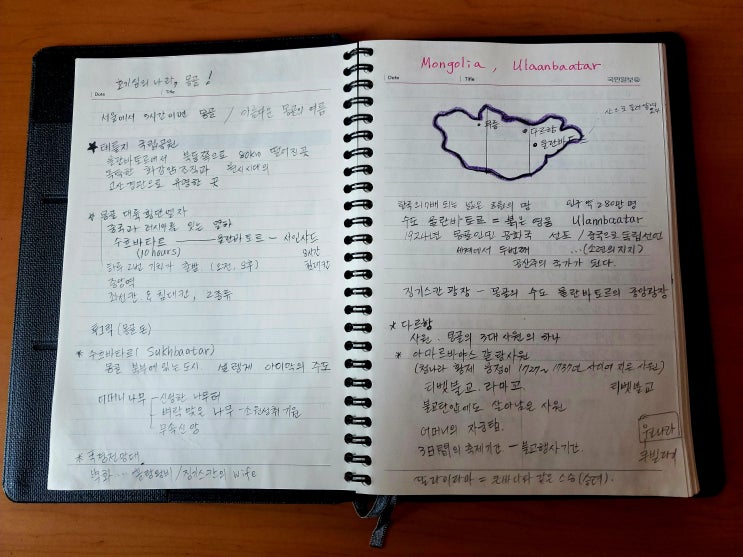 호기심의 나라, 몽골!
Date
Title
서울에서 3시간이면 몽골 / 아름다운 몽골의 여름
★ 테를지 국립공원
울란바토르에서 북동쪽으로 80km 떨어진 곳
독특한 화강암 조각과 원시시대의
고산경관으로 유명한 곳
* 몽골 대륙횡단열차
중국과 러시아를 잇는 열차
수흐바타르 — 울란바토르 — 자민우드
(10 hours)
하루 2번 기차가 출발 (오전, 오후)
중앙역
좌석칸 & 침대칸, 2종류
(몽골 돈)
* 수흐바타르 (Sukhbaatar)
몽골 북부에 있는 도시 셀렝게 아이막의 주도
어머니 나무 - 신성한 나무터
벼락맞은 나무 - 소원성취 기원
무속신앙
* 국경전망대
벽화 … / 징기스칸의 wife
Mongolia, Ulaanbaatar
Date
Title
국민일보
다르항
울란바토르
한국의 7배 되는 넓은 초원의 땅 인구 약 280만 명
수도 울란바토르 = 붉은 영웅 Ulannbaatar
1924년 몽골인민공화국 선포 / 중국으로 독립선언
세계에서 두번째 … (소련의 지지)
공산주의 국가가 된다.
징기스칸 광장 - 몽골의 수도 울란바토르의 중앙광장
* 다르항
사원. 몽골의 3대 사원의 하나
* 아마르바야스갈랑사원
(청나라 황제 옹정이 1727~1737년 사이에 지은 사원)
티벳불교. 라마교 티벳불교
불교탄압에도 살아남은 사원
어머니의 자궁터.
3日間의 축제기간 - 불교행사기간
원나라
쿠빌라이
달라이라마 = 큰바다와 같은 스승(승려).